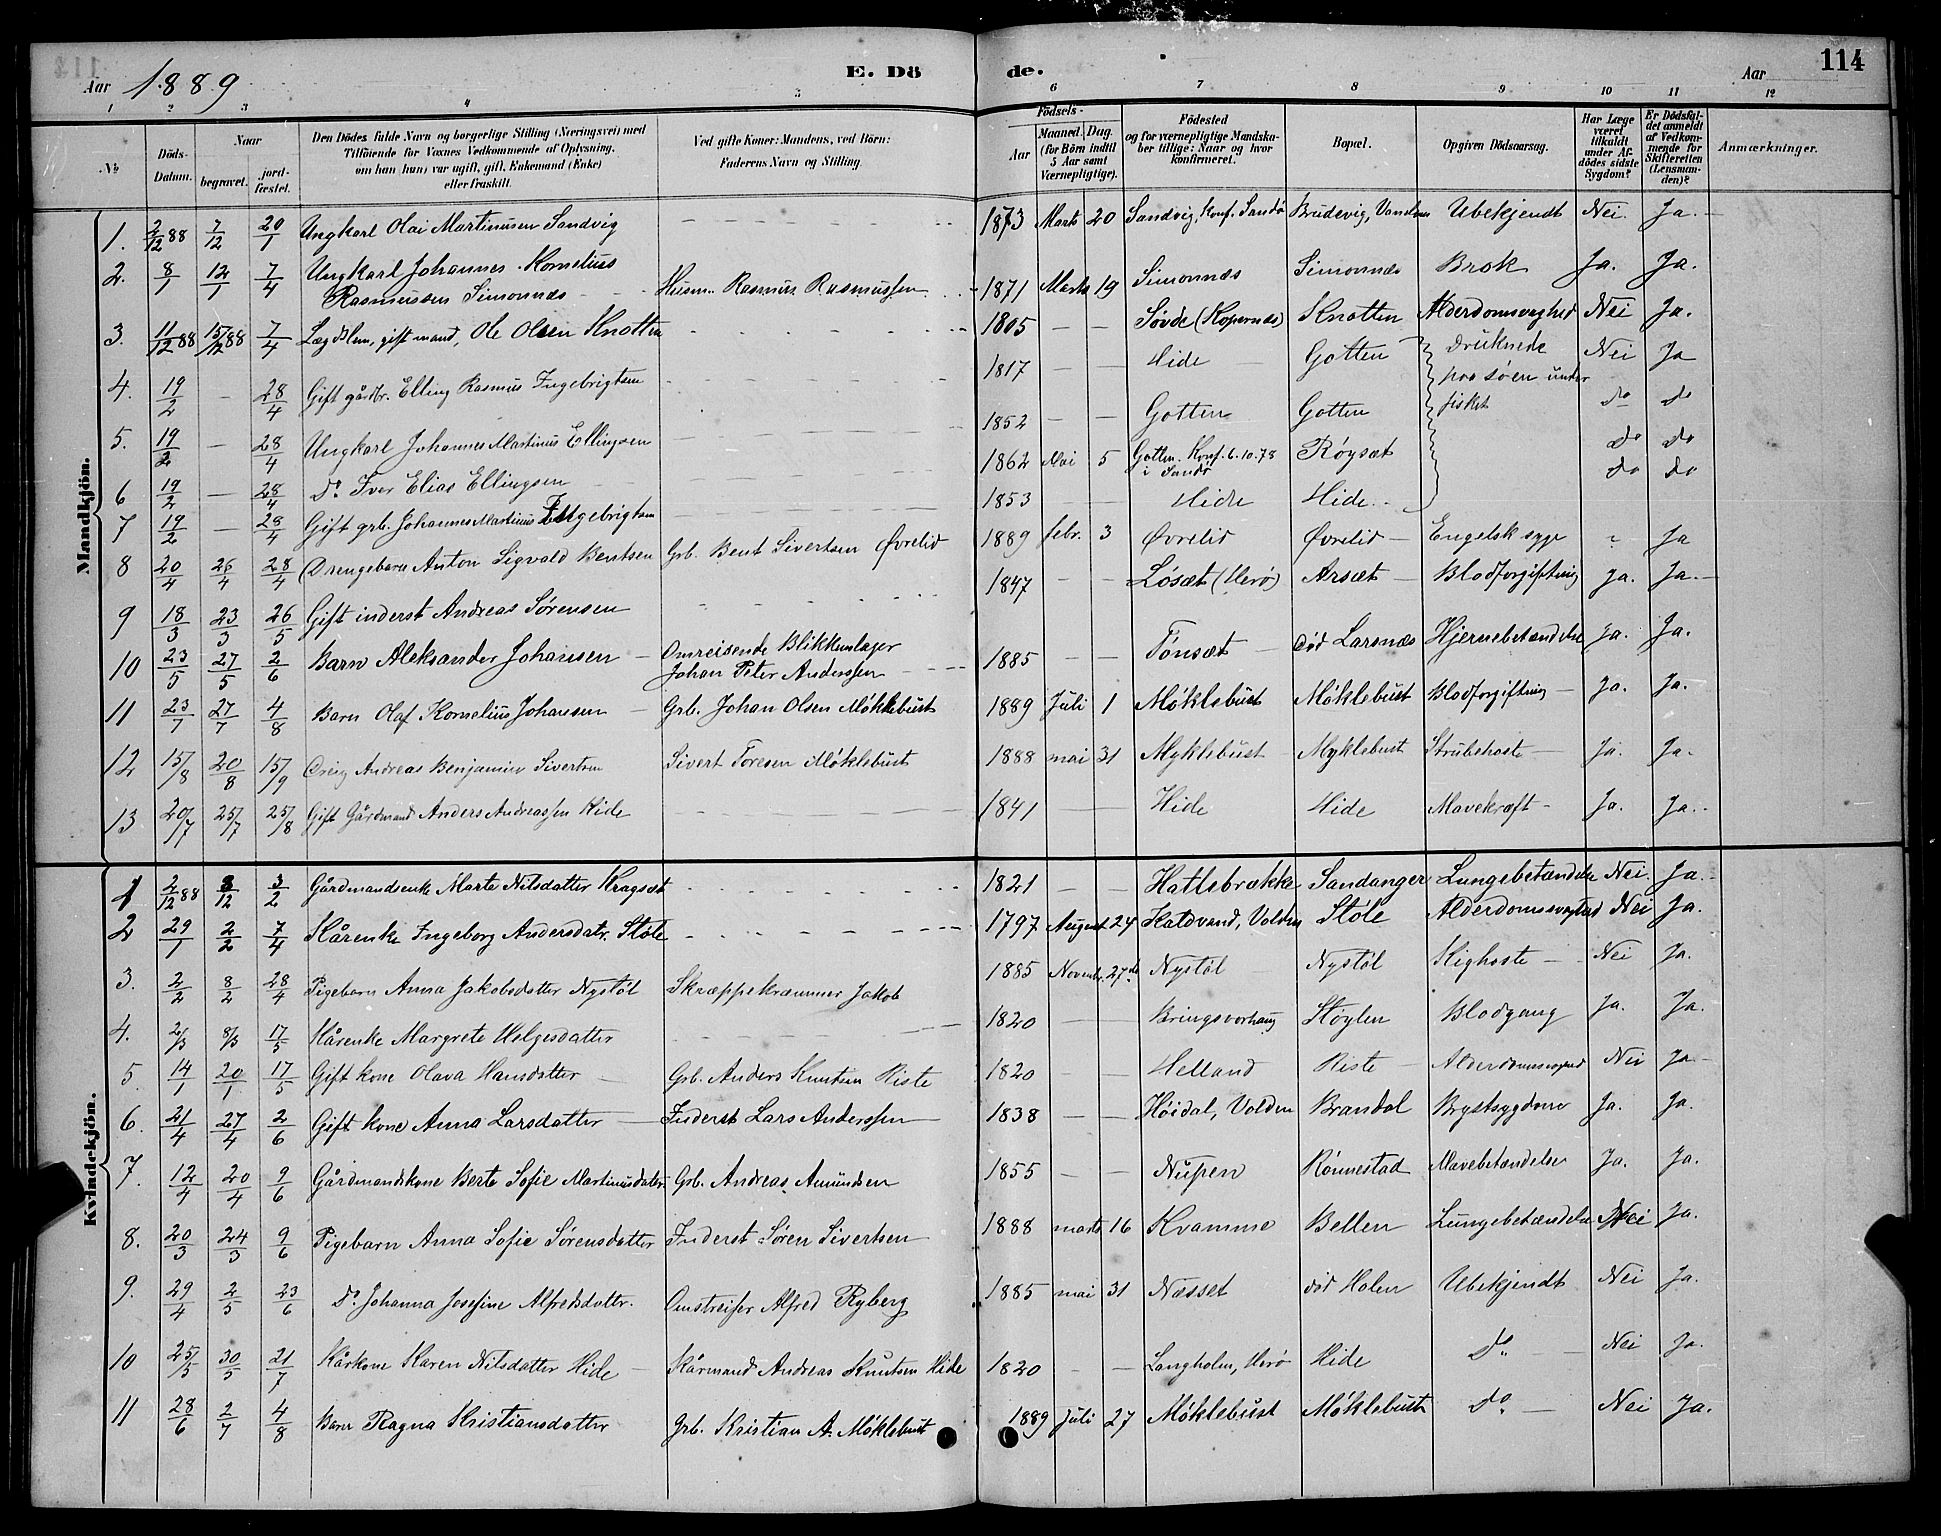 Aar 1889 E. Dö de. Aar 114
1 2 3 4 5 6 7 8 9 10 11 12
No.
Döds-Datum.
Naar begravet. jordfæstet.
Den Dödes fulde Navn og borgerlige Stilling (Næringsvei) med
Tilföiende for Voxnes Vedkommende af Oplysning,
om han (hun) var ugift, gift, Enkemand (Enke)
eller fraskilt.
Ved gifte Koner: Mandens, ved Börn:
Faderens Navn og Stilling.
Födsels-
Aar Maaned. Dag.
(for Börn indtil 5 Aar samt Værnepligtige).
Födested
og for værnepligtige Mandskaber tillige: Naar og hvor konfirmeret.
Bopæl.
Opgiven Dödsaarsag.
Har Læge været tilkaldt under Afdödes sidste Sygdom?
Er Dödsfaldet anmeldt af Vedkommende for Skifteretten (Lensmanden)?
Anmærkninger.
Mandkjön.
1. 2/12 88 7/12 20/1 Ungkarl Olai Martinusen Sandvig 1873 Marts 20 Sandvig, Konf. Sandö Brudevig, Ubekjendt Nei. Ja.
2. 8/1 12/1 7/4 Ungkarl Johannes Kornelius Rasmussen Simonnæs Husm. Rasmus Rasmussen 1871 Marts 19 Simonnæs Simonnæs Brok Ja. Ja.
3. 11/12 88 15/12 88 7/4 Lægdslem, gift mand, Ole Olsen Knotten 1805 Søvde (Kopernæs) Knotten Alderdomsvaghed Nei Ja.
4. 19/2 28/4 Gift gårdbr. Elling Rasmus Ingebrigtsen 1817 Hide Gotten Druknede paa søen under fisket Nei Ja
5. 19/2 28/4 Ungkarl Johannes Martinus Ellingsen 1852 Gotten Gotten do do
6 19/2 28/4 Do. Iver Elias Ellingsen 1862 Mai 5 Gotten. Konf. 6.10.78 i Sandö Røysæt do do
7 19/2 28/4 Gift grb. Johannes Martinus Ingebrigtsen 1853 Hide Hide do do
8 20/4 26/4 28/4 Drengebarn Anton Sigvald Bentsen Grb. Bent Sivertsen Øvrelid 1889 febr. 3 Øvrelid Øvrelid Engelsk syge Ja
9 18/3 23/3 26/5 Gift inderst Andreas Sørensen 1847 Løsæt (Herö) Arsæt Blodforgiftning Ja. Ja.
10 23/5 27/5 2/6 Barn Aleksander Johansen Omreisende Blikkenslager Johan Peter Anderssen 1885 Tönsæt död Larsnæs Hjernebetændelse Ja. Ja.
11 23/7 27/7 4/8 Barn Olaf Kornelius Johansen Grb. Johan Olsen Møklebust 1889 Juli 1 Møklebust Møklebust Blodforgiftning Ja. Ja.
12 15/8 20/8 15/9 Dreng Andreas Benjamin Sivertsen Sivert Toresen Møklebust 1888 mai 31 Myklebust Myklebust Strubehoste Ja. Ja.
13 20/7 25/7 25/8 Gift Gårdmand Anders Andreassen Hide 1841 Hide Hide Mavekræft Ja. Ja.
Kvindekjön.
1 2/12 88 8/12 3/2 Gårdmandsenke Marte Nilsdatter Kragsæt 1821 Hatlebrække Sandanger Lungebetændelse Nei. Ja.
2 29/1 2/2 7/4 Kårenke Ingeborg Andersdatr. Støle 1797 August 24 Katdvand, Volden Støle Alderdomssvaghed Nei Ja.
3. 2/2 8/2 28/4 Pigebarn Anna Jakobsdatter Nystöl Skræppekræmmer Jakob 1885 Novembr. 27de Nystöl Nystöl Kighoste Nei Ja.
4. 2/3 8/3 17/5 Kårenke Margrete Helgesdatter 1820 Bringsvorhaug Støylen Blodgang Ja. Ja.
5. 14/1 20/1 17/5 Gift kone Olava Hansdatter Grb. Anders Knutsen Riste 1820 Helland Riste Alderdomssvaghed Nei Ja.
6. 21/4 27/4 2/6 Gift kone Anna Larsdatter Inderst Lars Anderssen 1838 Høidal, Volden Brandal Brystsygdom Ja. Ja.
7. 12/4 20/4 9/6 Gårdmandskone Berte Sofie Martinusdatter Grb. Andreas Amundsen 1855 Nupen Rönnestad Mavebetændelse Ja. Ja.
8. 20/3 24/3 9/6 Pigebarn Anna Sofie Sørensdatter Inderst Søren Sivertsen 1888 marts 16 Kvamme Bellen Lungebetændelse Nei Ja.
9. 29/4 2/5 23/6 Do. Johanna Josefine Alfredsdatter. Omstreifer Alfred Ryberg 1885 mai 31 Næsset död Holen Ubekjendt Nei Ja.
10 25/5 30/5 21/7 Kårkone Karen Nilsdatter Hide Kårmand Andreas Knutsen Hide 1820 Langholm, Herö Hide Do. Nei Ja.
11 28/6 2/7 4/8 Barn Ragna Kristiansdatter Grb. Kristian A. Møklebust 1889 Juli 27 Møklebust Møklebust Do. Nei Ja.